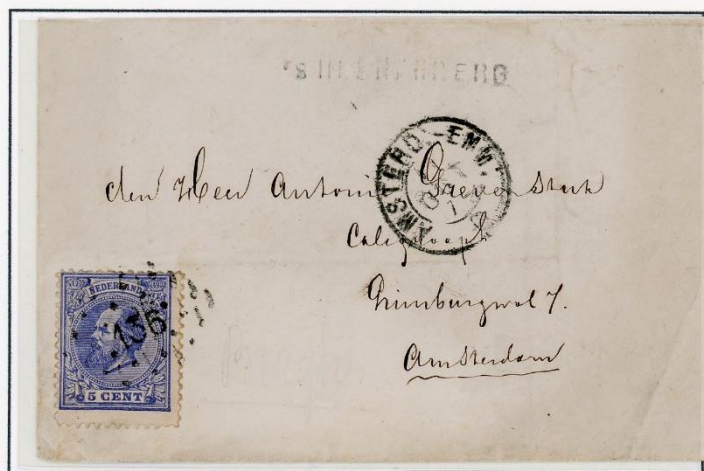 's HEERENBERG
AMSTERD.-EMM:
den Heer Anton Grevenstuk
Grimburgwal 7.
Amsterdam
NEDERLAND
136
5 CENT